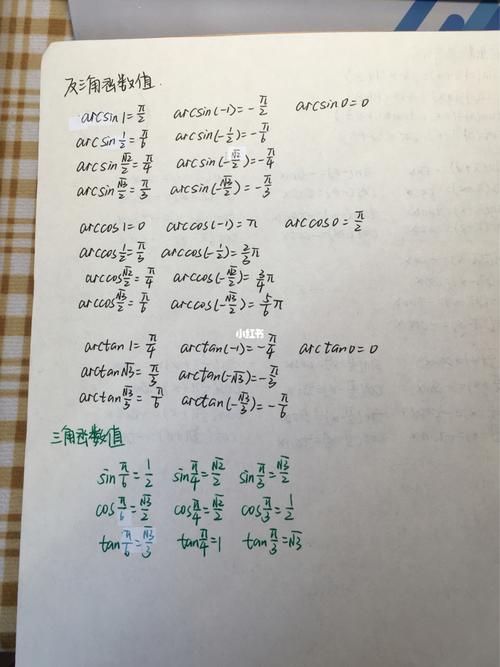 反三角函数值.
arcsin1=π/2 arcsin(-1)=-π/2 arcsin0=0
arcsin1/2=π/6 arcsin(-1/2)=-π/6
arcsin√2/2=π/4 arcsin(-√2/2)=-π/4
arcsin√3/2=π/3 arcsin(-√3/2)=-π/3
arccos1=0 arccos(-1)=π arccos0=π/2
arccos1/2=π/3 arccos(-1/2)=2/3π
arccos√2/2=π/4 arccos(-√2/2)=3/4π
arccos√3/2=π/6 arccos(-√3/2)=5/6π
小红书
arctan1=π/4 arctan(-1)=-π/4 arctan0=0
arctan√3=π/3 arctan(-√3)=-π/3
arctan√3/3=π/6 arctan(-√3/3)=-π/6
三角函数值
sinπ/6=1/2 sinπ/4=√2/2 sinπ/3=√3/2
cosπ/6=√3/2 cosπ/4=√2/2 cosπ/3=1/2
tanπ/6=√3/3 tanπ/4=1 tanπ/3=√3